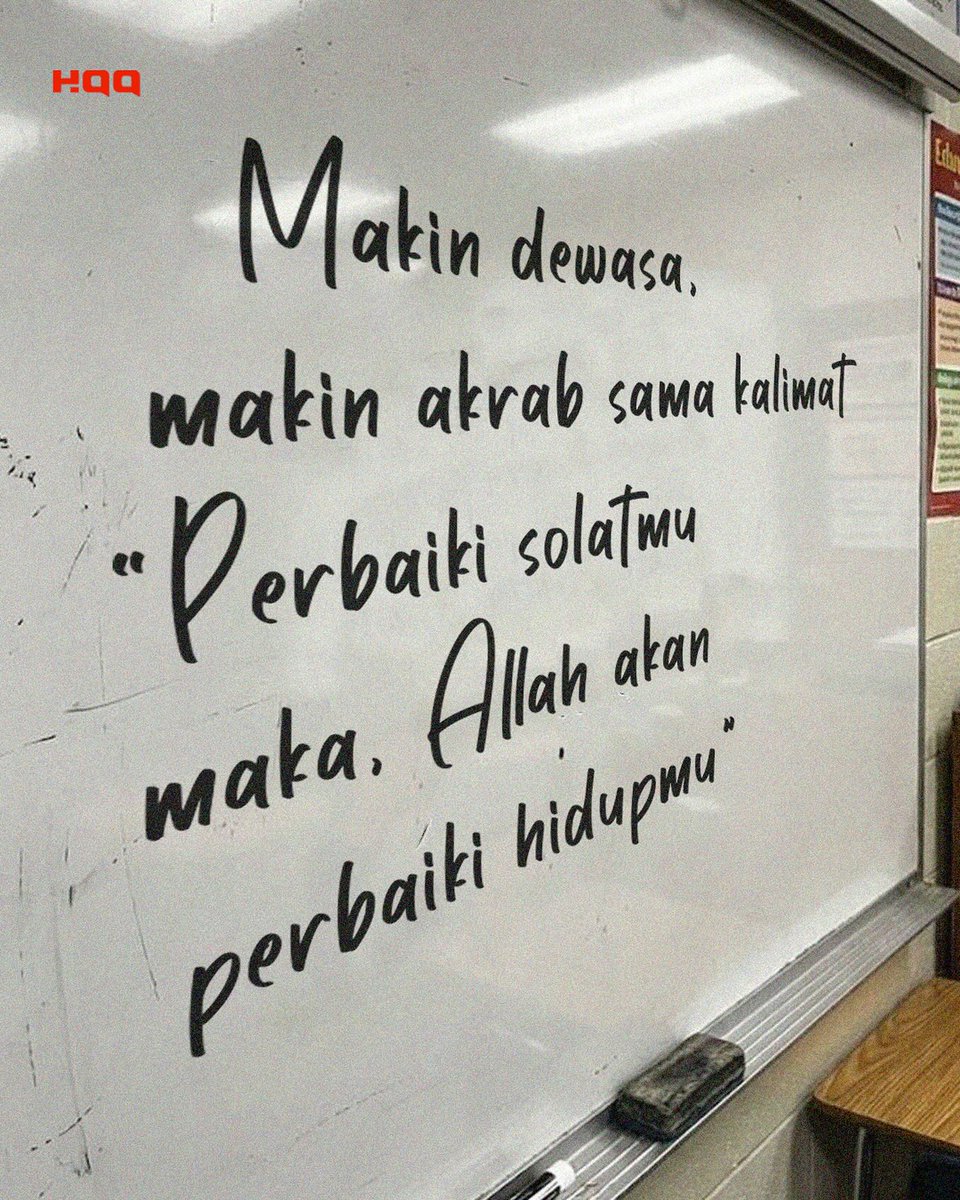 HQQ
Makin dewasa,
makin akrab sama kalimat
"Perbaiki solatmu
maka, Allah akan
perbaiki hidupmu"